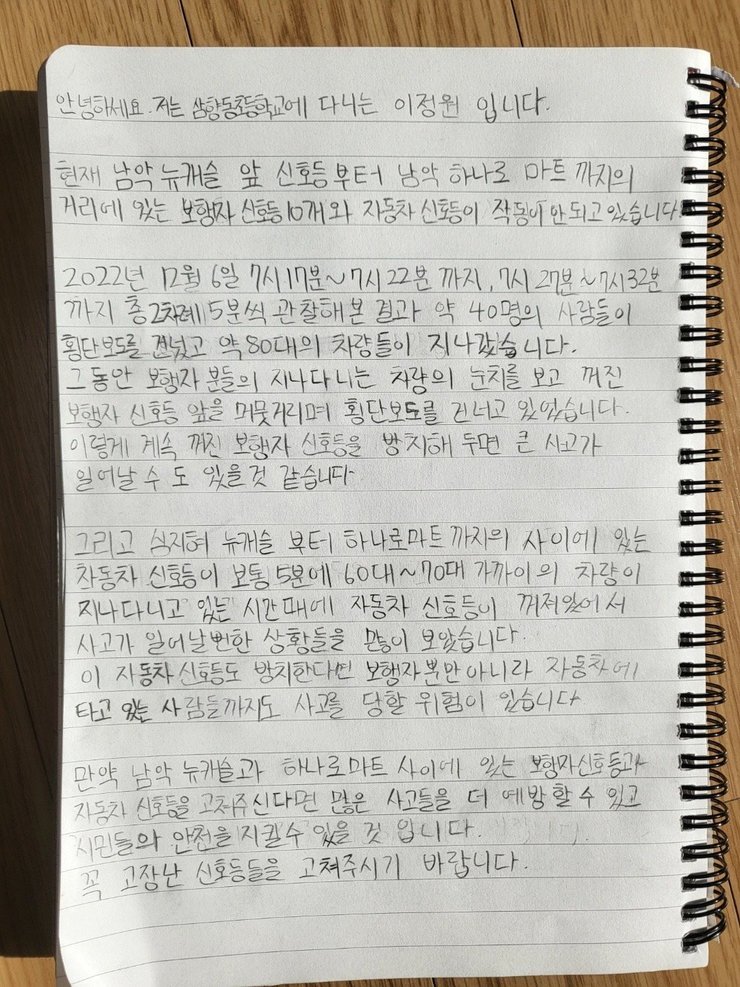 안녕하세요. 저는 삼향동초등학교에 다니는 이정원 입니다.
현재 남악 뉴캐슬 앞 신호등 부터 남악 하나로 마트 까지의
거리에 있는 보행자 신호등 10개와 자동차 신호등이 작동이 안되고 있습니다
2022년 12월 6일 7시17분~7시22분 까지, 7시 27분~7시32분
까지 총 2차례 5분씩 관찰해본 결과 약 40명의 사람들이
횡단보도를 건넜고 약80대의 차량들이 지나갔습니다.
그 동안 보행자 분들의 지나다니는 차량의 눈치를 보고 꺼진
보행자 신호등 앞을 머뭇거리며 횡단보도를 건너고 있었습니다.
이렇게 계속 꺼진 보행자 신호등을 방치해 두면 큰 사고가
일어날 수 도 있을것 같습니다
그리고 심지혀 뉴캐슬 부터 하나로마트 까지의 사이에 있는
자동차 신호등이 보통 5분에 60대~70대 가까이의 차량이
지나다니고 있는 시간 때에 자동차 신호등이 꺼져있어서
사고가 일어날뻔한 상황들을 많이 보았습니다.
이 자동차 신호등도 방치한다면 보행자뿐만 아니라 자동차에
타고 있는 사람들까지도 사고를 당할 위험이 있습니다
만약 남악 뉴캐슬과 하나로마트 사이에 있는 보행자신호등과
자동차 신호등을 고쳐주신다면 많은 사고들을 더 예방할 수 있고
시민들의 안전을 지킬수 있을 것 입니다.
꼭 고장난 신호등들을 고쳐주시기 바랍니다.